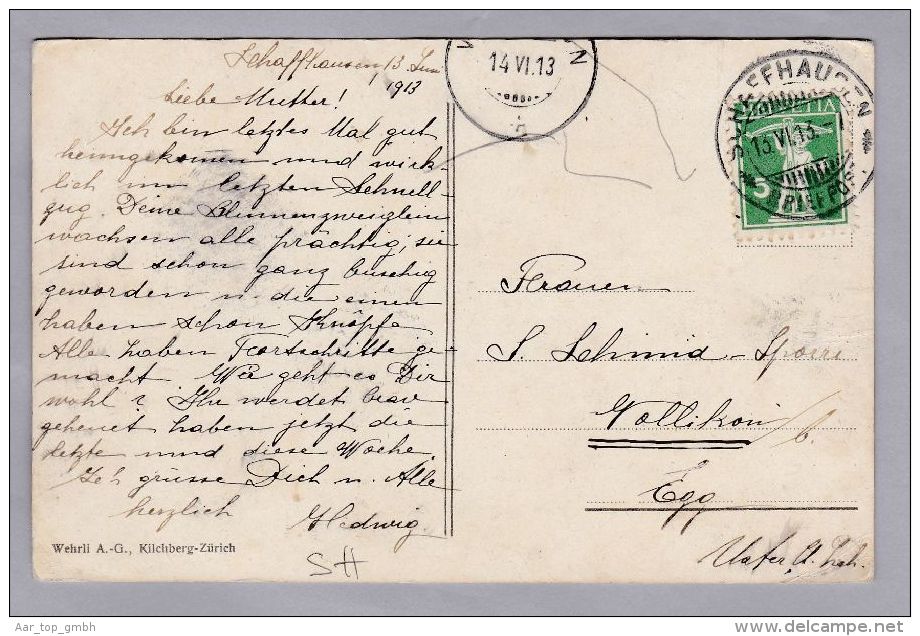 Schaffhausen, 13. Juni
1913
Liebe Mutter!
Ich bin letztes Mal gut
heimgekomen und wirk-
lich im letzten Schnell-
zug. Deine Blumenzweiglein
wachsen alle prächtig; sie
sind schon ganz buschig
geworden u. die einen
haben schon Knöpfe
Alle haben Fortschritte ge-
macht. Wie geht es Dir
wohl? Ihr werdet brav
geheuet haben jetzt die
letzte und diese Woche.
Ich grüsse Dich u. Alle
herzlich Hedwig.
Wehrli A.-G., Kilchberg-Zürich
SH
14 VI. 13
SCHAFFHAUSEN
13 VI. 13
BRIEFPOST
HELVETIA
5
Frauen
S. Schmid - Spörri
Vollikon b.
Egg
Aar_top_gmbh
delcampe.net